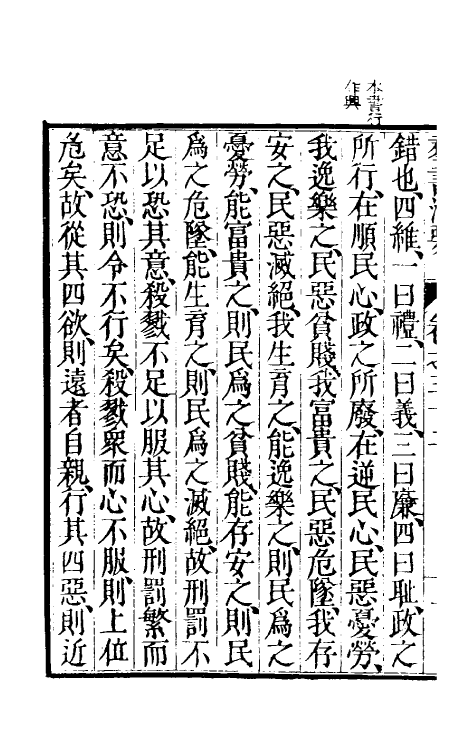 本書行
作興
羣書治要 卷之三十二
錯也、四維、一曰禮、二曰義、三曰廉、四曰耻、政之
所行、在順民心、政之所廢、在逆民心、民惡憂勞、
我逸樂之、民惡貧賤、我富貴之、民惡危墜、我存
安之、民惡滅絕、我生育之、能逸樂之、則民爲之
憂勞、能富貴之、則民爲之貧賤、能存安之、則民
爲之危墜、能生育之、則民爲之滅絕、故刑罰不
足以恐其意、殺戮不足以服其心、故刑罰繁而
意不恐、則令不行矣、殺戮衆而心不服、則上位
危矣、故從其四欲、則遠者自親、行其四惡、則近